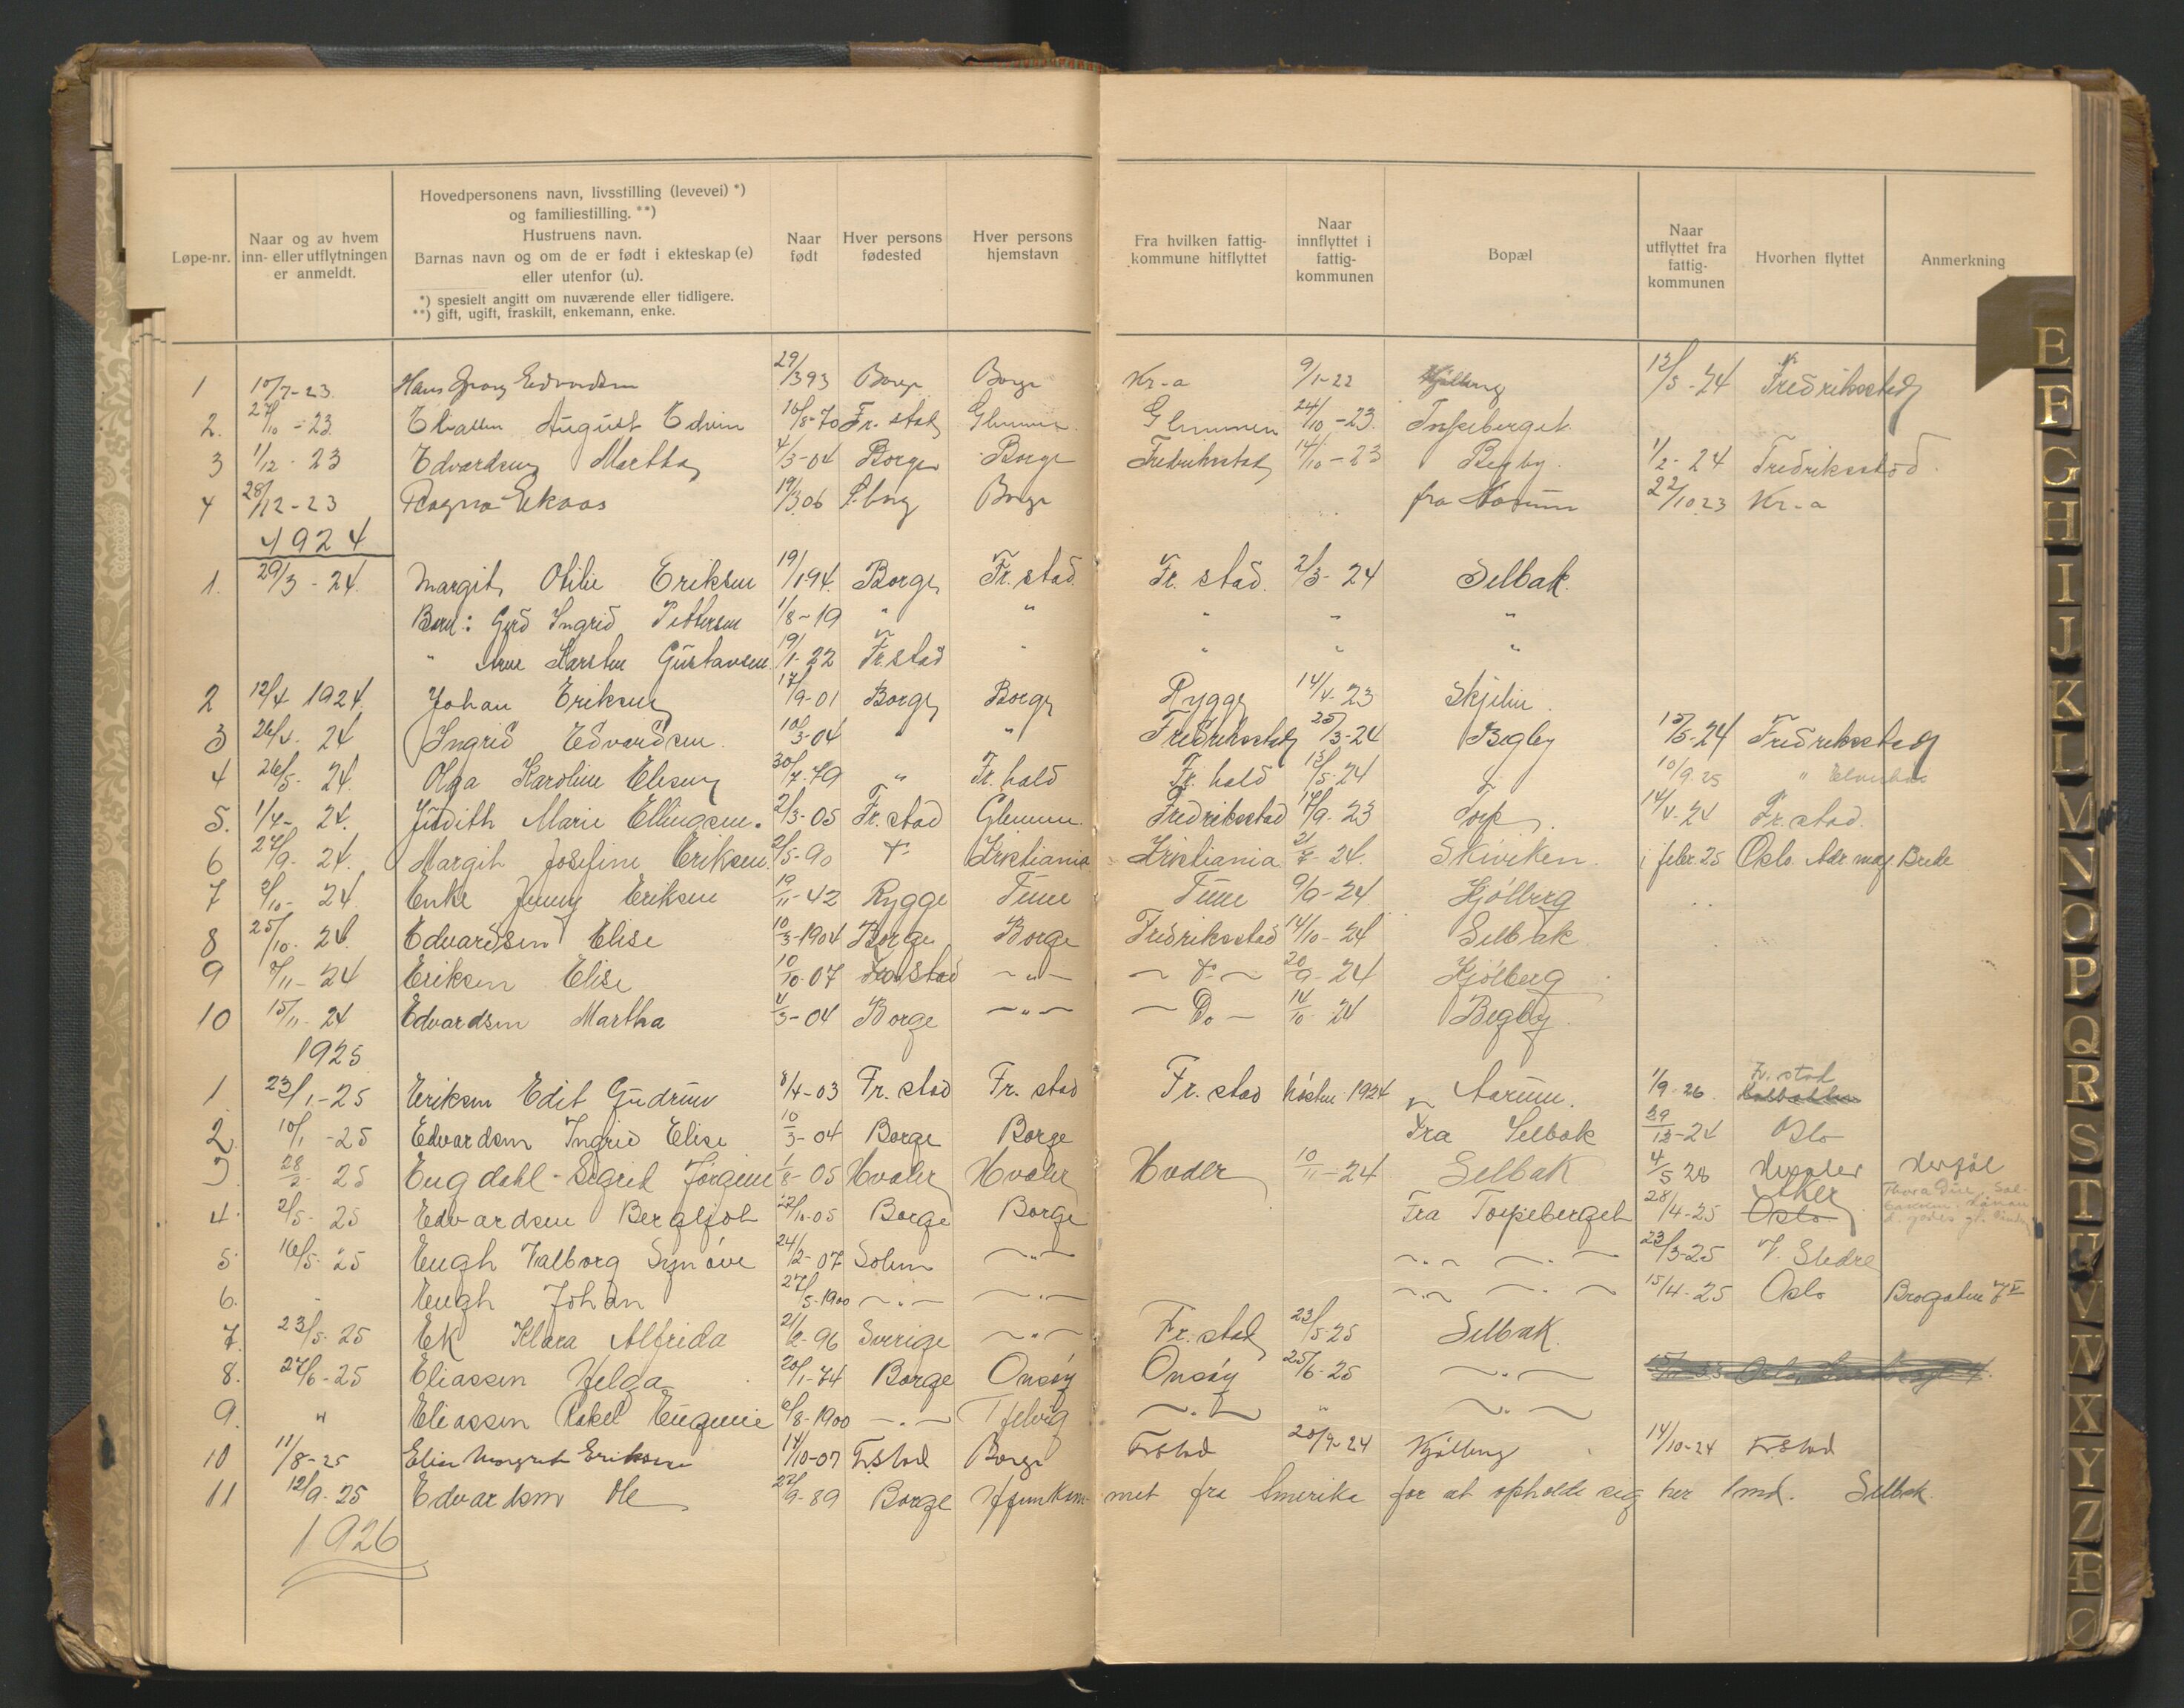 Løpe-nr. Naar og av hvem inn- eller utflytningen er anmeldt. Hovedpersonens navn, livsstilling (levevei) *) og familiestilling. **) Hustruens navn. Barnas navn og om de er født i ekteskap (e) eller utenfor (u). *) spesielt angitt om nuværende eller tidligere. **) gift, ugift, fraskilt, enkemann, enke. Naar født Hver persons fødested Hver persons hjemstavn Fra hvilken fattig-kommune hitflyttet Naar innflyttet i fattig-kommunen Bopæl Naar utflyttet fra fattig-kommunen Hvorhen flyttet Anmerkning
1 10/7-23. Hans Georg Edvardsen 29/3 93 Borge Borge Kr-a 9/1-22 Kjølberg 12/5-24 Fredriksstad
2. 27/10-23. Eliassen August Edvin 16/8-70 Fr. stad Glemmen. Glemmen 24/10-23. Torpeberget.
3 1/12-23 Edvardsen Martha 4/3-04 Borge Borge Fredriksstad 14/10-23 Begby. 1/2-24 Fredriksstad.
4 28/12-23 Ragna Ekaas 19/3 06 Borge fra Aarum 22/10 23 Kr-a
1924
1. 29/3-24. Margit Otilie Eriksen 19/1 94. Borge Fr. stad. Fr. stad. 2/3-24 Selbak.
Barn: Gerd Ingrid Pettersen 1/8-19 " " " " "
" Arne Karsten Gustavsen 19/1-22 Fr. stad " " " "
2 12/4 1924. Johan Eriksen 17/9-01 Borge Borge Rygge 14/4-23 Skjelin.
3 26/4-24 Ingrid Edvardsen. 10/3-04 " " Fredriksstad 25/3-24 Begby 15/5-24 Fredriksstad
4 26/5-24. Olga Karoline 30/7-79 " Fr. hald Fr. hald 15/5-24 10/9-25 "
5. 1/4-24. Judith Marie Ellingsen. 2/3-05 Fr. stad Glemmen. Fredriksstad 17/9-23 Torp. 14/4-24 Fr. stad.
6 27/9-24. Margit Josefine Eriksen 2/5-90 Kristiania Kristiania 2/7-24. Skiviken. i febr. 25 Oslo.
7 2/10-24. Enke Jenny Eriksen 19/11-42 Rygge Tune Tune 9/9-24 Kjølberg
8 25/10-24. Edvardsen Elise 10/3-1904 Borge Borge Fredriksstad 14/10-24 Selbak
9 7/11-24 Eriksen Elise 10/10-07 Fr. stad -"- 20/9-24 Kjølberg
10 15/11-24 Edvardsen Martha 4/3-04 Borge -"- - Do - 14/10-24 Begby.
1925
1 23/1-25 Eriksen Edit Gudrun 8/4-03 Fr. stad Fr. stad Fr. stad høsten 1924 Aarum. 1/9-26. Fr. stad
2. 10/1-25 Edvardsen Ingrid Elise 10/3-04 Borge Borge Fra Selbak 29/12-24 Oslo
3. 28/2-25 Engdahl - Sigrid Jørgine 1/8-05 Hvaler Hvaler Hvaler 10/11-24 Selbak 4/5 28 Hvaler Herføl
4. 2/5-25 Edvardsen Bergljot 22/10-05 Borge Borge Fra Torpeberget 28/4-25 Oslo Aker
5 16/5-25 Eugh Valborg Synøve 24/2-07 -"- -"- 23/3-25 V. Slidre
6. " Eugh Johan 27/5-1900 -"- -"- -"- 15/4-25 Oslo
7. 23/5-25 Ek Klara Alfrida 21/2-96 Sverige -"- Fr. stad 23/5-25 Selbak.
8. 27/6-25 Eliassen Helga 20/1-74 Borge Onsøy Onsøy 25/6-25 -"-
9. " Eliassen Rakel Eugenie 6/8-1900 -"- Tjølvig -"- " -"-
10 11/8-25 Elise Margret Eriksen 14/10-07 Fr.stad Borge Frstad 20/9-24 Kjølberg 14/10-24 Frstad
11 12/9-25 Edvardsen Ole 27/9-89 Borge Hjemkommet fra Amerika for at opholde sig her 1 md. Selbak.
1926
E
F
G
H
I
J
K
L
M
N
O
P
Q
R
S
T
U
V
W
X
Y
Z
Æ
Ø